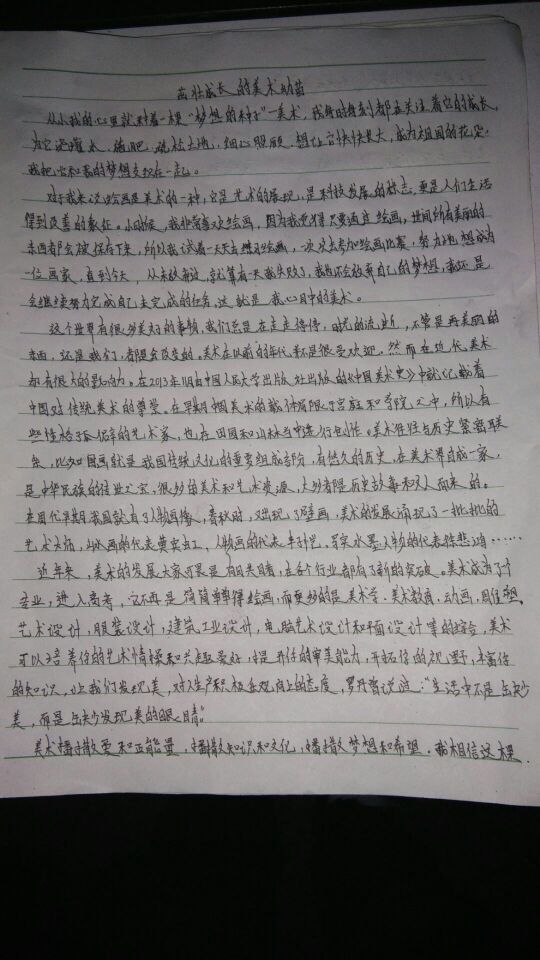 茁壮成长的美术幼苗
从小我的心里就种着一棵“梦想的种子”—美术，我每时每刻都在关注着它的成长，
为它浇灌水、施肥、疏松土地、细心照顾，想让它快快长大，成为祖国的花朵。
我把它和我的梦想交织在一起。
对于我来说绘画是美术的一种，它是艺术的展现，是科技发展的标志，更是人们生活
得到改善的象征。小时候，我非常喜欢绘画，因为我觉得只要通过绘画，世间所有美丽的
东西都会被保存下来，所以我试着一天天去学习绘画，一次次去参加绘画比赛，努力地想成为
一位画家，直到今天，从未放弃，就算有一天我失败了，我也不会放弃自己的梦想，而是
会继续努力完成自己未完成的任务，这就是我心目中的美术。
这个世界有很多美好的事物，我们总是在走走停停，时光的流逝，不管是再美丽的
东西，还是我们，都是会改变的。美术在以前的年代并不是很受欢迎，然而在近代，美术
却有很大的影响力。在2013年11月由中国人民大学出版社出版的《中国美术史》中就记载着
中国对传统美术的尊崇。在早期中国美术的载体局限于宫廷和寺院之中，所以有
些性格孤傲的艺术家，也在田园和山林当中进行创作。美术往往与历史紧密联
系，比如国画就是我国传统文化的重要组成部分，有悠久的历史，在美术界自成一家，
是中华民族的传世之宝，很多的美术和艺术资源，大多都是历史故事和文人而来的。
在周代早期我国就有了人物画像，春秋时，又出现了壁画，美术的发展涌现了一批批的
艺术大师，山水画的代表黄宾虹、人物画的代表、写实水墨人物的代表徐悲鸿……
近年来，美术的发展大家可是有目共睹，在各个行业都有了新的突破。美术成为了个
专业，进入高考，它不再是简简单单得绘画，而更多的是美术学、美术教育、动画、
艺术设计、服装设计、建筑工业设计、电脑艺术设计和平面设计等的综合，美术
可以培养你的艺术情操和兴趣爱好，提升你的审美能力，开拓你的视野，丰富你
的知识，让我们发现美，对人生产积极乐观向上的态度，罗丹曾说过：“生活中不是缺少
美，而是缺少发现美的眼睛”。
美术播撒爱和正能量，播撒知识和文化，播撒梦想和希望。我相信这棵